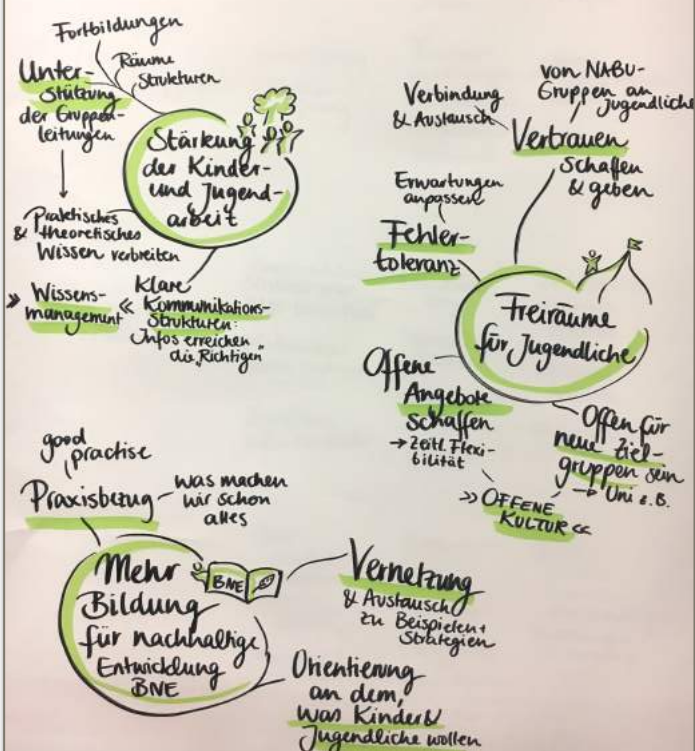 Fortbildungen
Räume
Strukturen
Unter-
stützung
der Gruppen-
leitungen
Stärkung
der Kinder-
und Jugend-
arbeit
Praktisches
& theoretisches
Wissen verbreiten
» Wissens-
management «
Klare
Kommunikations-
strukturen:
Infos erreichen
die „Richtigen"
Verbindung
& Austausch
von NABU-
Gruppen an
Jugendliche
Vertrauen
schaffen
& geben
Erwartungen
anpassen
Fehler-
toleranz
Freiräume
für Jugendliche
Offene
Angebote
schaffen
→ Zeitl. Flexi-
bilität
Offen für
neue Ziel-
gruppen sein
→ Uni z.B.
»OFFENE
KULTUR«
good
practise
Praxisbezug
was machen
wir schon
alles
Mehr
Bildung
für nachhaltige
Entwicklung
BNE
BNE
Vernetzung
& Austausch
zu Beispielen +
Strategien
Orientierung
an dem,
was Kinder &
Jugendliche wollen